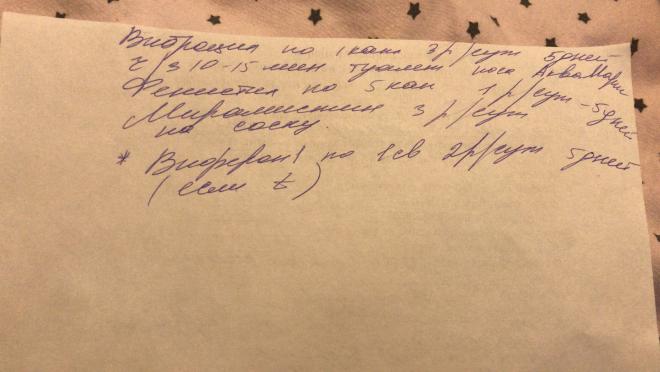 Виброцил по 1 кап 3 р/сут 5 дней
ч/з 10-15 мин туалет носа АкваМарис
Фенистил по 5 кап 1 р/сут - 5 дней
Мирамистин 3 р/сут
на соску.
* Виферон 1 по 1 св 2 р/сут 5 дней
(если t)